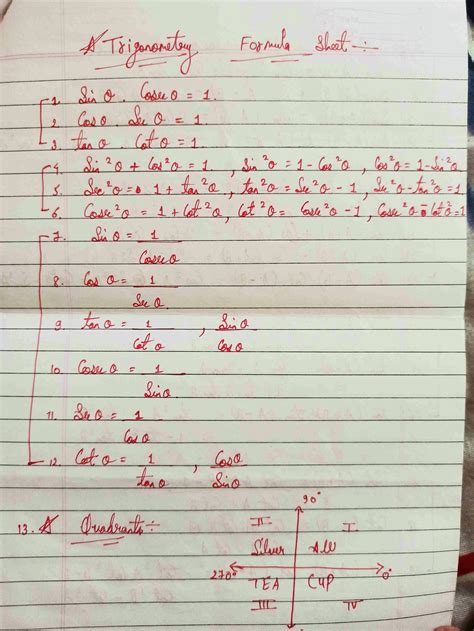 * Trigonometry Formula Sheet :-
1. Sin θ . Cosec θ = 1.
2. Cos θ . Sec θ = 1.
3. tan θ . Cot θ = 1.
4. Sin²θ + Cos²θ = 1. , Sin²θ = 1 - Cos²θ , Cos²θ = 1 - Sin²θ
5. Sec²θ = 1 + tan²θ , tan²θ = Sec²θ - 1 , Sec²θ - tan²θ = 1
6. Cosec²θ = 1 + Cot²θ , Cot²θ = Cosec²θ - 1 , Cosec²θ - Cot²θ = 1
7. Sin θ = 1
Cosec θ
8. Cos θ = 1
Sec θ
9. tan θ = 1 , Sin θ
Cot θ Cos θ
10. Cosec θ = 1
Sin θ
11. Sec θ = 1
Cos θ
12. Cot θ = 1 , Cos θ
tan θ Sin θ
90°
13. * Quadrants :-
II I
Silver All
270° 0°
TEA CUP
III IV